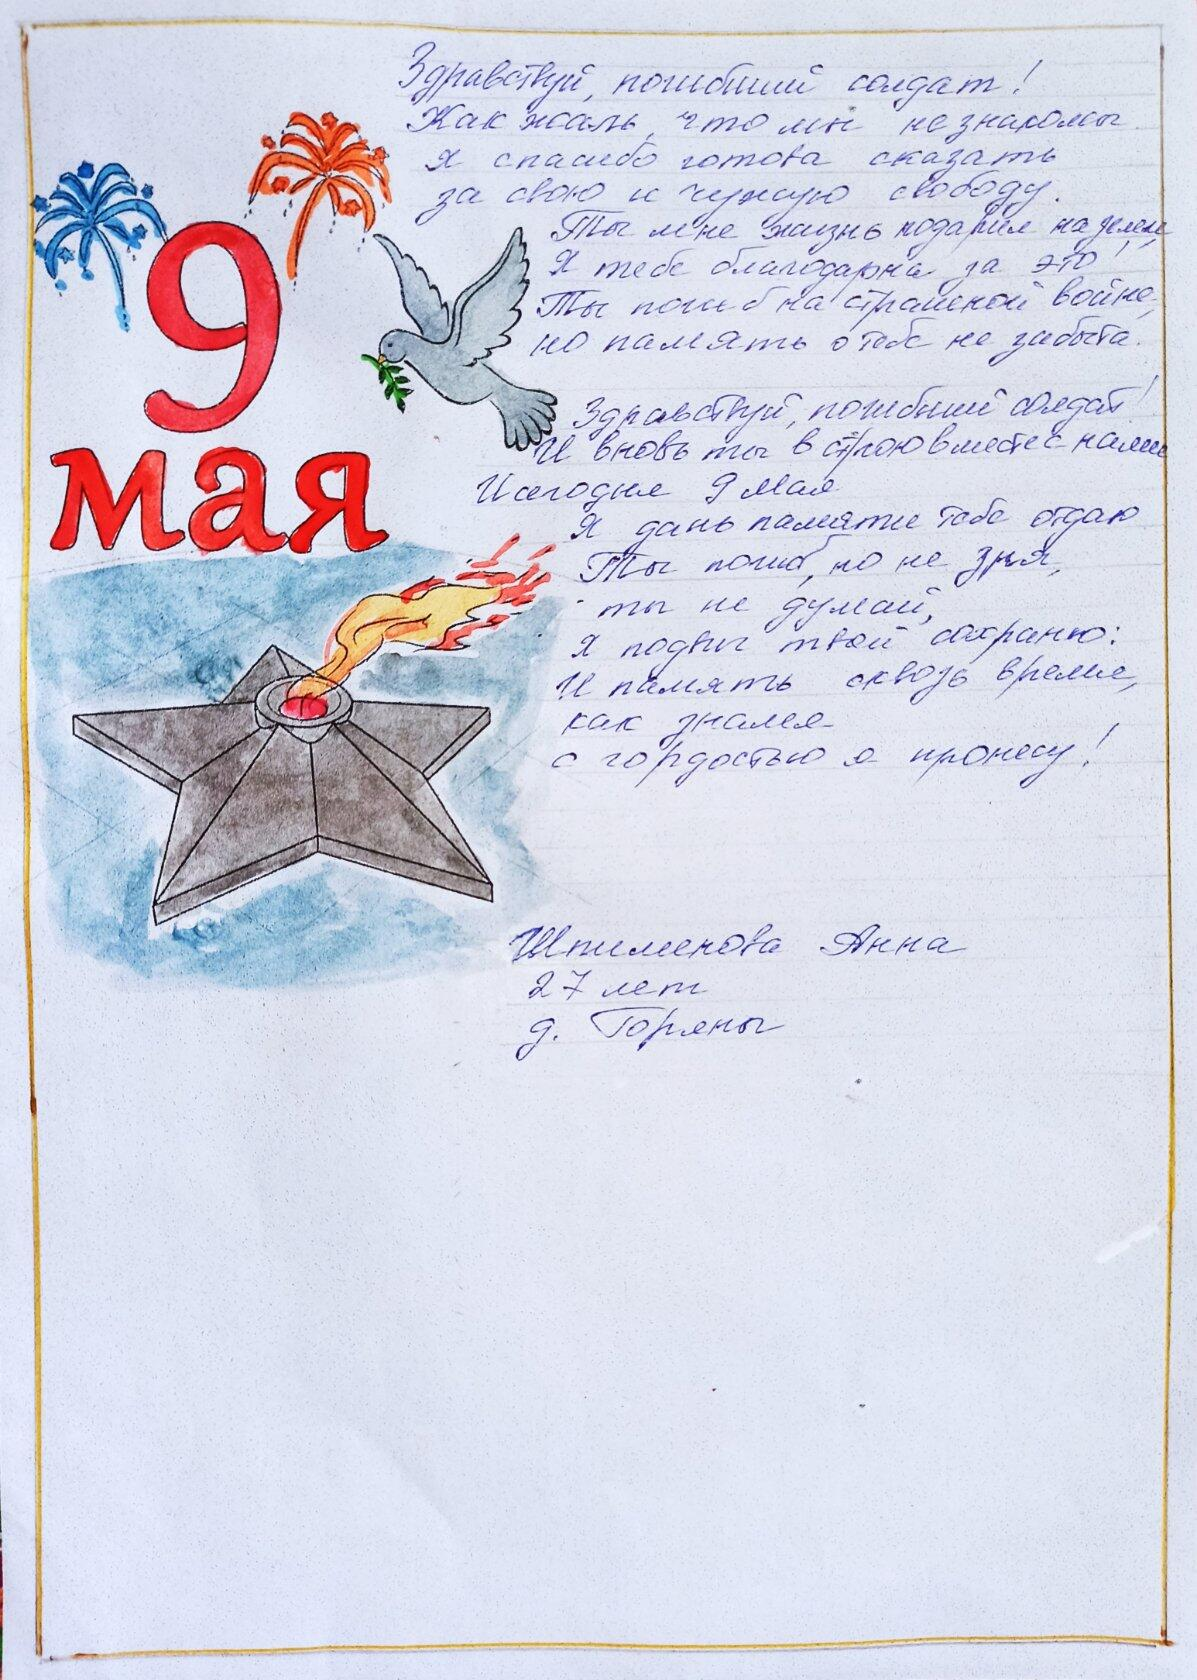 9
мая
Здравствуй, погибший солдат!
Как жаль, что мы не знакомы
Я спасибо готова сказать
за свою и чужую свободу.
Ты мне жизнь подарил на земле,
Я тебе благодарна за это!
Ты погиб на страшной войне,
но память о тебе не забыта.
Здравствуй, погибший солдат!
И вновь ты в строю вместе с нами
И сегодня 9 Мая
Я дань памяти тебе отдаю
Ты погиб, но не зря,
ты не думай,
Я подвиг твой сохраню:
И память сквозь время,
как знамя
с гордостью я пронесу!
Анна
27 лет
д. Горяны